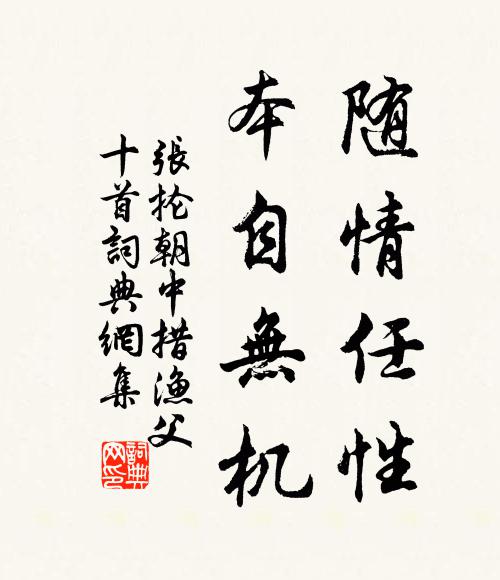 随情任性
本自無机
張抡朝中措漁父
十首詞典網集
詞典
网印